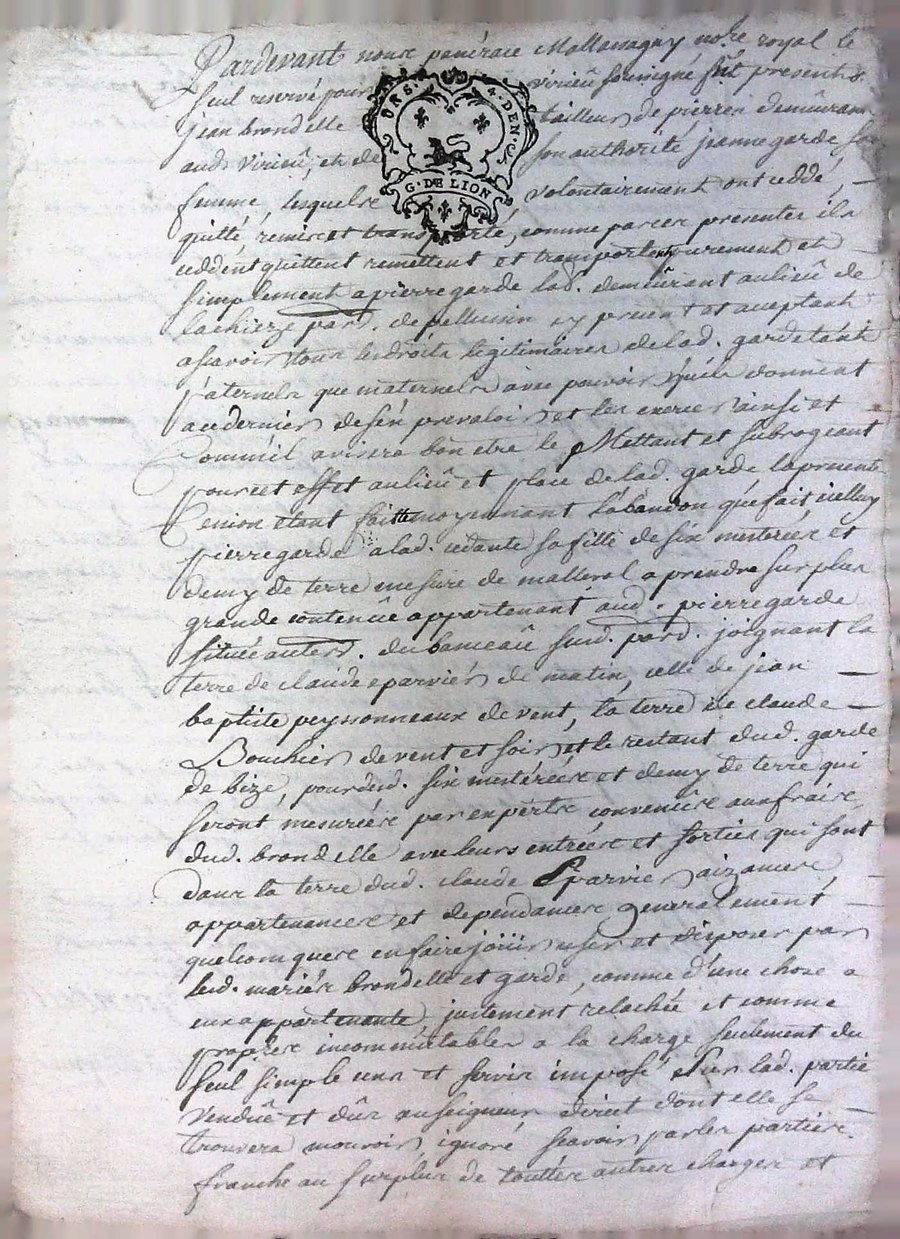 Pardevant nous pancrace Mallassagny no.re royal le
seul reservé pour virieû soussigné fût presents
jean brondelle tailleur de pierres demeurant
aud. Virieû, et de son authorité jeanne garde sa
femme, lesquels volontairement ont ceddé,
DRS. 4. DEN.
G. DE LION
quitté, remis et transporté, comme par ces presentes ils
ceddent quittent remettent et transportent purement et
simplement a pierre garde lad. demeurant au lieû de
lachieze par.d. de pellussin icy present et aceptant
assavoir tous les droits legitimaires de lad. garde tant
paternels que maternels avec pouvoir qu'ils donnent
au dernier de s'en prevaloir et les exercer ainsi et
Comm'il avisera bon etre le Mettant et subrogeant
pour cet effet au lieû et place de lad. garde la presente
Cession etant faitte moyennant l'abandon que fait icelluy
pierre garde a lad. cedante sa fille de six mesterées et
demy de terre mesure de malleval a prendre sur plus
grande contenûe appartenant aud. pierre garde
située au terr. du bameaû sud. par.d. joignant la
terre de claude eparvier de matin, celle de jean
baptiste peyssonneaux de vent, la terre de claude
Bouchier de vent et soir et le restant dud. garde
de bize, pour lesd. six mesterées et demy de terre qui
seront mesurées par experts convenûs aux fraix
dud. brondelle avec leurs entrées et sorties qui sont
dans la terre dud. claude Eparvier aizances
appartenances et dependances generalement
quelconques en faire joüir user et disposer par
lesd. mariés brondelle et garde, comme d'une chose a
eux appartenante justement relachée et comme
propres incommutables a la charge seulement du
seul simple cens et servis imposé sur lad. partie
vendûe et dûs au seigneur direct dont elle se
trouvera mouvoir ignoré sçavoir par les parties
franche au surplus de touttes autres charges et